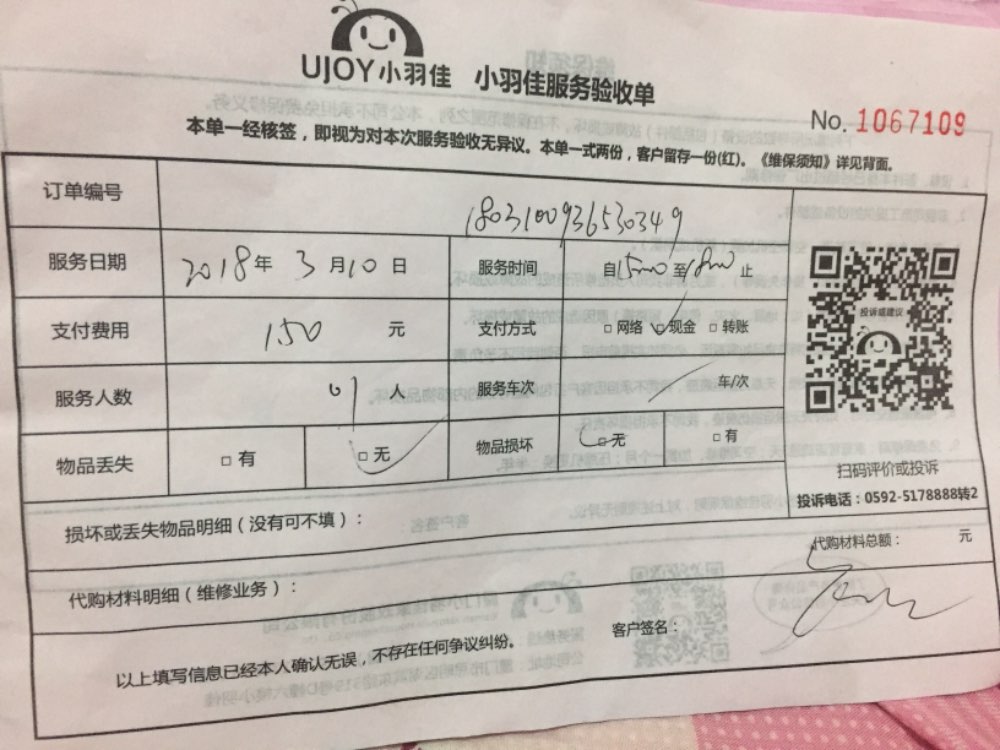 UJOY小羽佳 小羽佳服务验收单
No. 1067109
本单一经核签，即视为对本次服务验收无异议。本单一式两份，客户留存一份(红)。《维保须知》详见背面。
订单编号 1803100936530349
服务日期 2018年 3月10日 服务时间 自15:00至18:00止
支付费用 150 元 支付方式 □网络 ☑现金 □转账
服务人数 01人 服务车次 / 车/次
物品丢失 □有 ☑无 物品损坏 ☑无 □有
投诉或建议
扫码评价或投诉
投诉电话：0592-5178888转2
损坏或丢失物品明细（没有可不填）：
代购材料明细（维修业务）： 代购材料总额： 元
以上填写信息已经本人确认无误，不存在任何争议纠纷。 客户签名：